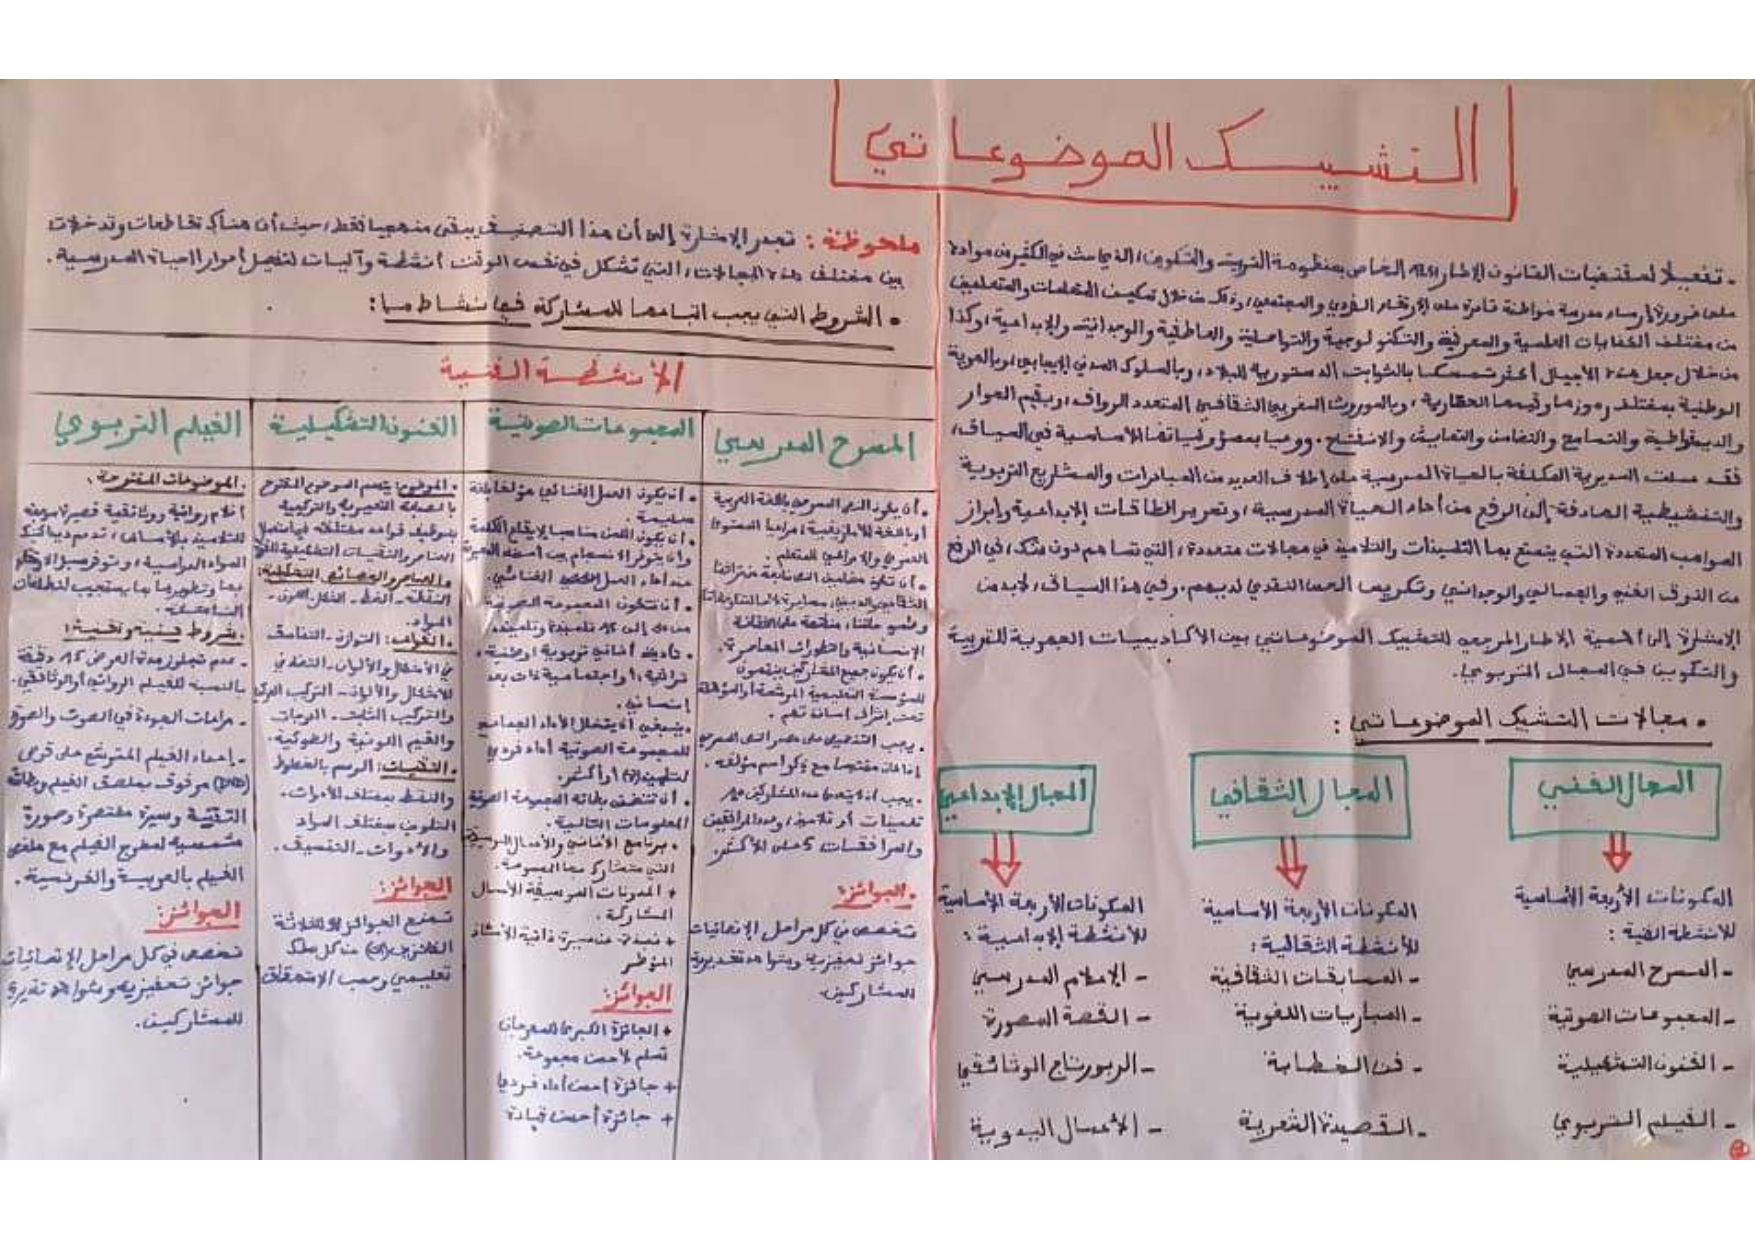 التشبيك الموضوعاتي
- تفعيلا لمقتضيات القانون الإطار 51.17 الخاص بمنظومة التربية والتكوين، الذي حث في الكثير من مواده
على ضرورة إرساء مدرسة مواطنة قادرة على الارتقاء الفردي والمجتمعي، وذلك من خلال تمكين المتعلمات والمتعلمين
من مختلف الكفايات العلمية والمعرفية والتكنولوجية والتواصلية والعاطفية والوجدانية والإبداعية، وكذا
من خلال جعل هذه الأجيال أكثر تمسكا بالثوابت الدستورية للبلاد، وبالسلوك المدني الإيجابي، وبالهوية
الوطنية بمختلف رموزها وقيمها الحضارية، وبالموروث المغربي الثقافي المتعدد الروافد، وبقيم الحوار
والديمقراطية والتسامح والتضامن والتعايش والانفتاح، ووعيا بمسؤولياتها الأساسية في السياق،
فقد عملت المديرية المكلفة بالحياة المدرسية على إطلاق العديد من المبادرات والمشاريع التربوية
والتنشيطية الهادفة إلى الرفع من أداء الحياة المدرسية، وتحرير الطاقات الإبداعية وإبراز
المواهب المتعددة التي يتمتع بها التلميذات والتلاميذ في مجالات متعددة، التي تساهم دون شك، في الرفع
من الذوق الفني والجمالي والوجداني وتكريس الحس النقدي لديهم. وفي هذا السياق، لابد من
الإشارة إلى أهمية الإطار المرجعي للتشبيك الموضوعاتي بين الأكاديميات الجهوية للتربية
والتكوين في المجال التربوي.
• مجالات التشبيك الموضوعاتي:
المجال الفني
المكونات الأربعة الأساسية
للأنشطة الفنية :
- المسرح المدرسي
- المجموعات الصوتية
- الفنون التشكيلية
- الفيلم التربوي
المجال الثقافي
المكونات الأربعة الأساسية
للأنشطة الثقافية :
- المسابقات الثقافية
- المباريات اللغوية
- فن الخطابة
- القصيدة الشعرية
المجال الإبداعي
المكونات الأربعة الأساسية
للأنشطة الإبداعية :
- الإعلام المدرسي
- القصة المصورة
- الربورتاج الوثائقي
- الأعمال اليدوية
ملحوظة : تجدر الإشارة إلى أن هذا التصنيف يبقى منهجيا فقط، حيث أن هناك تقاطعات وتدخلات
بين مختلف هذه المجالات، التي تشكل في نفس الوقت أنشطة وآليات لتفعيل أدوار الحياة المدرسية.
• الشروط التي يجب اتباعها للمشاركة في نشاط ما:
الأنشطة الفنية
المسرح المدرسي
• أن يكون النص المسرحي باللغة العربية
أو باللغة الأمازيغية، مراعيا المستوى
العمري والإدراكي للمتعلم.
الإنسانية والتطورات المعاصرة.
• أن يكون جميع المشاركين ينتمون
للمؤسسة التعليمية المرشحة أو المؤهلة
تحت إشراف أساتذتهم.
• يجب التنصيص على مصدر النص المسرحي
إذا كان مقتبسا مع ذكر اسم مؤلفه.
• يجب أن لا يتعدى عدد المشاركين
تلميذات أو تلاميذ، وعدد المرافقين
والمرافقات 2 على الأكثر.
• الجوائز:
تخصص في كل مراحل الإقصائيات
جوائز تحفيزية وشواهد تقديرية
للمشاركين.
المجموعات الصوتية
• أن يكون العمل الغنائي مؤلفا بلغة
سليمة
• أن يكون اللحن مناسبا لإيقاع الكلمة
عند أداء العمل الغنائي.
• أن تتكون المجموعة الصوتية
• تأدية أغاني تربوية، وطنية،
تراثية، أو اجتماعية ذات بعد
إنساني.
• ينبغي أن يتخلل الأداء الجماعي
للمجموعة الصوتية أداء فردي
لتلميذين (2) أو أكثر.
• أن تتضمن بطاقة المجموعة الصوتية
المعلومات التالية.
+ المدونات الموسيقية للأعمال
المشاركة.
+ نبذة عن سيرة ذاتية للأستاذ
المؤطر
الجوائز:
+ الجائزة الكبرى للمهرجان
تسلم لأحسن مجموعة.
+ جائزة أحسن أداء فردي
+ جائزة أحسن قيادة
الفنون التشكيلية
• الموضوع: يتسم الموضوع المقترح
بالصبغة التعبيرية والتركيبية
والعناصر والخصائص التشكيلية:
النقطة - الخط - الشكل - اللون -
المواد.
• القواعد: التوازن - التضامن
في الأشكال والألوان - التضاد في
الأشكال والألوان - التركيب الحركي
والتركيب الثابت - الدرجات
والقيم اللونية والضوئية.
• التقنيات: الرسم بالخطوط
والنقط بمختلف الأدوات.
التلوين بمختلف المواد
والأدوات - التنسيق.
الجوائز:
تمنح الجوائز للثلاثة
الفائزين (3) من كل سلك
تعليمي وحسب الاستحقاق
الفيلم التربوي
• الموضوعات المقترحة:
أفلام روائية ووثائقية قصيرة موجهة
• شروط فنية وتقنية:
- عدم تجاوز مدة العرض 15 دقيقة
بالنسبة للفيلم الروائي أو الوثائقي.
- مراعاة الجودة في الصوت والصورة
- إعداد الفيلم المتوج على قرص
(DVD) مرفوق بملصق الفيلم وبطاقة
التقنية وسيرة مختصرة وصورة
شمسية لمخرج الفيلم مع ملخص
الفيلم بالعربية والفرنسية.
الجوائز:
تخصص في كل مراحل الإقصائيات
جوائز تحفيزية وشواهد تقديرية
للمشاركين.